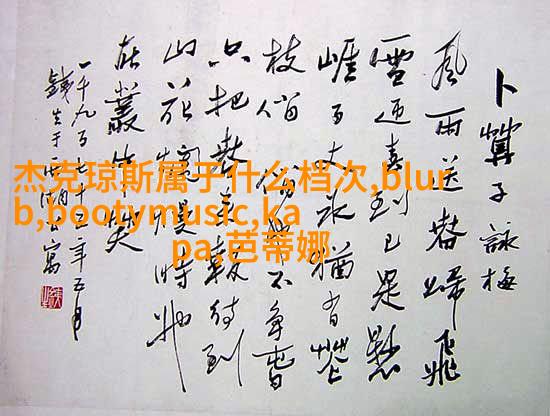 卜算子詠梅
風雨送春歸飛
雪迎春到已是懸
崖百丈冰猶有花
枝俏俏也不爭春
只把春來報待到
山花爛熳時她
在叢中笑
一千九百七十年五月
錢于西湖公寓
杰克琼斯属于什么档次,blur
b,bootymusic,ka
pa,芭蒂娜